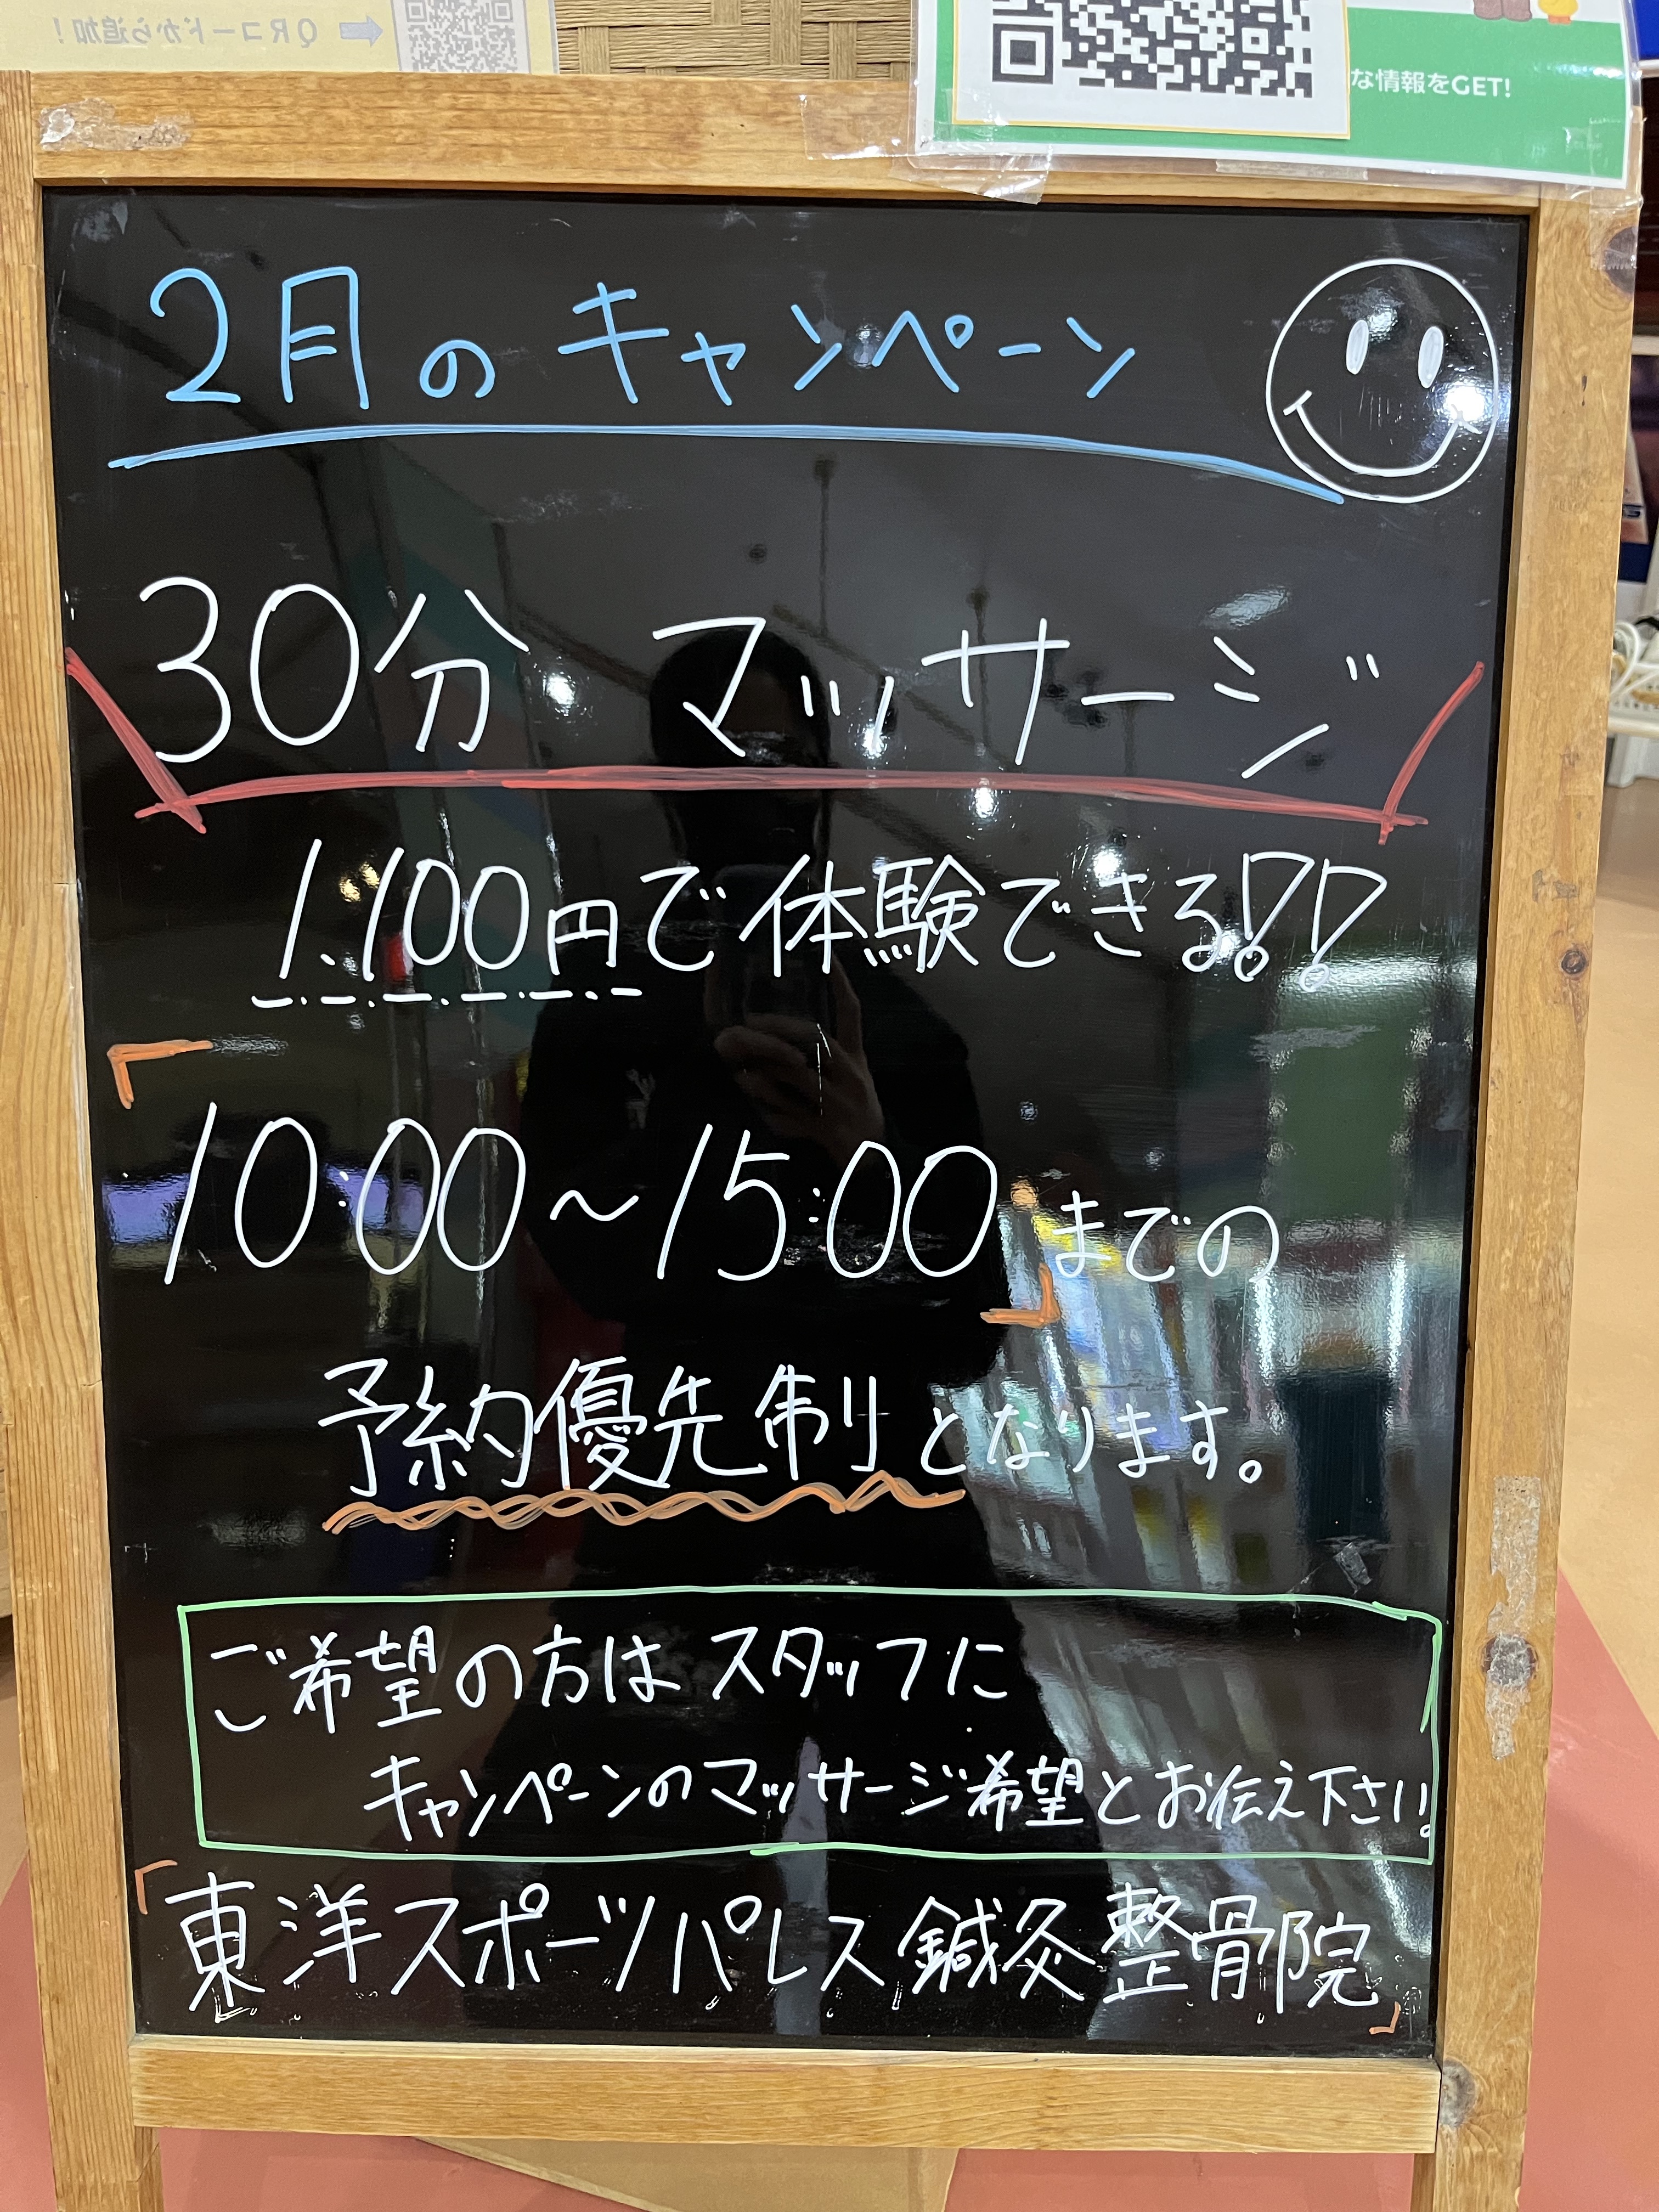 QRコードから追加!
な情報をGET!
2月のキャンペーン
30分 マッサージ
1,100円で体験できる!!
「10:00～15:00」までの
予約優先制となります。
ご希望の方はスタッフに
キャンペーンのマッサージ希望とお伝え下さい!
「東洋スポーツパレス鍼灸整骨院」